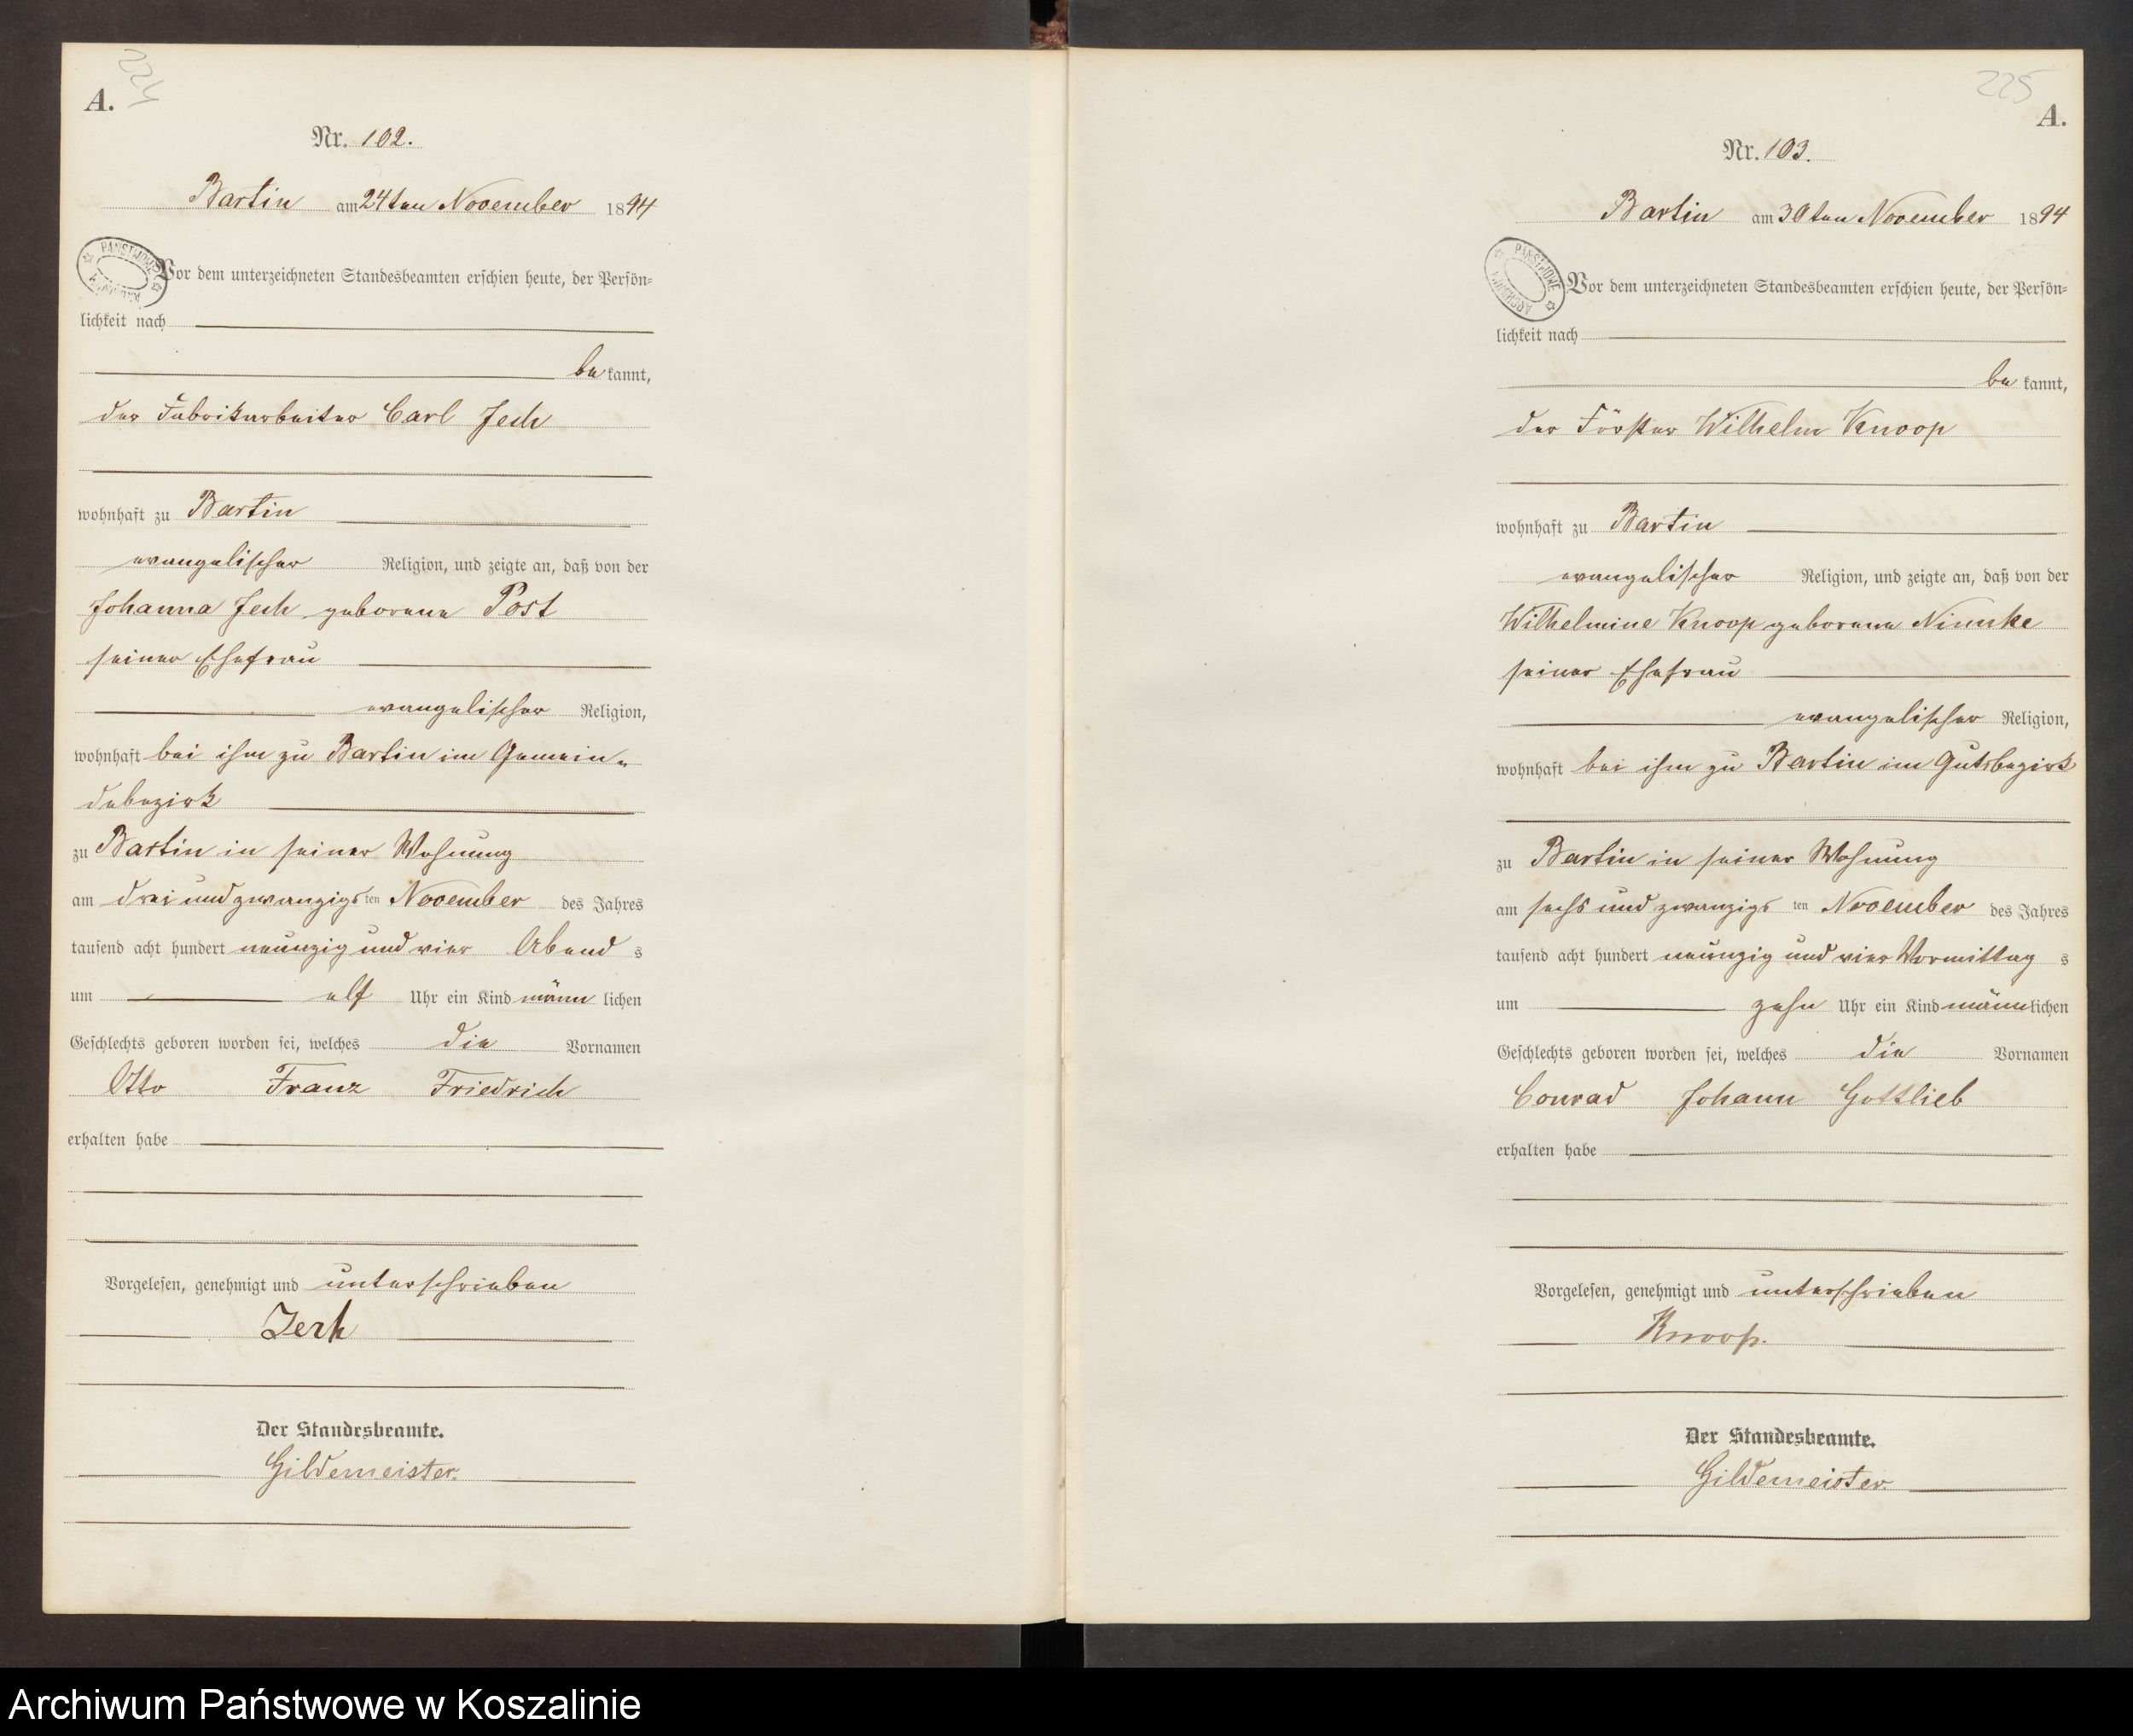 224
A.
Nr. 102.
Bartin am 24ten November 1894
PAŃSTWOWE ARCHIWUM
Vor dem unterzeichneten Standesbeamten erschien heute, der Persön=
lichkeit nach
be kannt,
der Fabrikarbeiter Carl Jech
wohnhaft zu Bartin
evangelischer Religion, und zeigte an, daß von der
Johanna Jech geborene Post
seiner Ehefrau
evangelischer Religion,
wohnhaft bei ihm zu Bartin im Gemein-
debezirk
zu Bartin in seiner Wohnung
am drei und zwanzigs ten November des Jahres
tausend acht hundert neunzig und vier Abend s
um elf Uhr ein Kind männ lichen
Geschlechts geboren worden sei, welches die Vornamen
Otto Franz Friedrich
erhalten habe
Vorgelesen, genehmigt und unterschrieben
Jech
Der Standesbeamte.
Gildemeister.
225
A.
Nr. 103.
Bartin am 30ten November 1894
PAŃSTWOWE ARCHIWUM
Vor dem unterzeichneten Standesbeamten erschien heute, der Persön=
lichkeit nach
be kannt,
der Förster Wilhelm Knoop
wohnhaft zu Bartin
evangelischer Religion, und zeigte an, daß von der
Wilhelmine Knoop geborene Nimke
seiner Ehefrau
evangelischer Religion,
wohnhaft bei ihm zu Bartin im Gutsbezirk
zu Bartin in seiner Wohnung
am sechs und zwanzigs ten November des Jahres
tausend acht hundert neunzig und vier Vormittag s
um zehn Uhr ein Kind männlichen
Geschlechts geboren worden sei, welches die Vornamen
Conrad Johann Gottlieb
erhalten habe
Vorgelesen, genehmigt und unterschrieben
Knoop.
Der Standesbeamte.
Gildemeister.
Archiwum Państwowe w Koszalinie